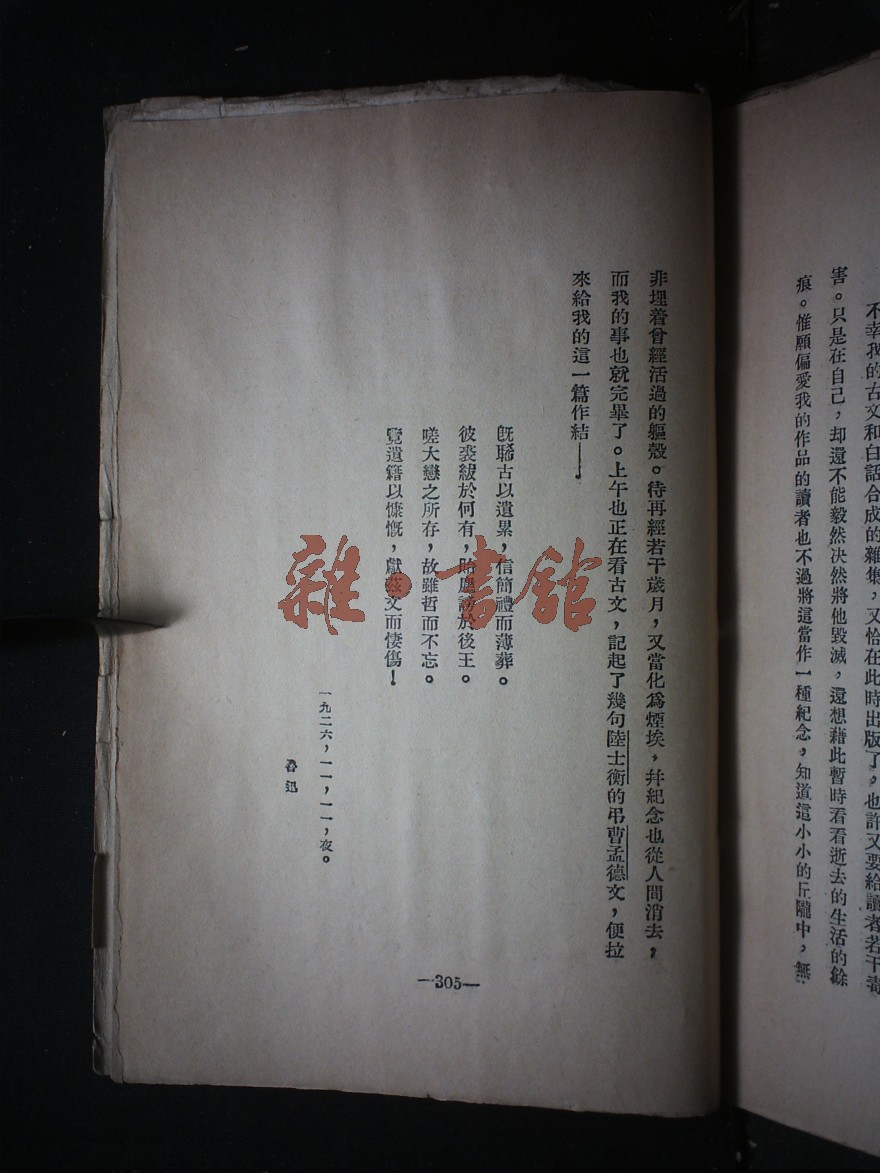 不幸我的古文和白話合成的雜集，又恰在此時出版了，也許又要給讀者若干毒
害。只是在自己，却還不能毅然决然將他毀滅，還想藉此暫時看看逝去的生活的餘
痕。惟願偏愛我的作品的讀者也不過將這當作一種紀念，知道這小小的丘隴中，無
非埋着曾經活過的軀殼。待再經若干歲月，又當化爲煙埃，幷紀念也從人間消去，
而我的事也就完畢了。上午也正在看古文，記起了幾句陸士衡的吊曹孟德文，便拉
來給我的這一篇作結——
旣睎古以遺累，信簡禮而薄葬。
彼裘紱於何有，貽塵謗於後王。
嗟大戀之所存，故雖哲而不忘。
覽遺籍以慷慨，獻茲文而悽傷！
一九二六，一一，一一，夜。
魯迅
—305—
雜·書館